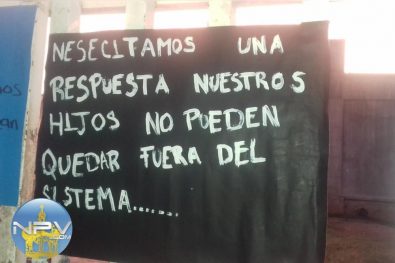 NESECITAMOS UNA
RESPUESTA NUESTROS
HIJOS NO PUEDEN
QUEDAR FUERA DEL
SISTEMA.......
NPV
.COM